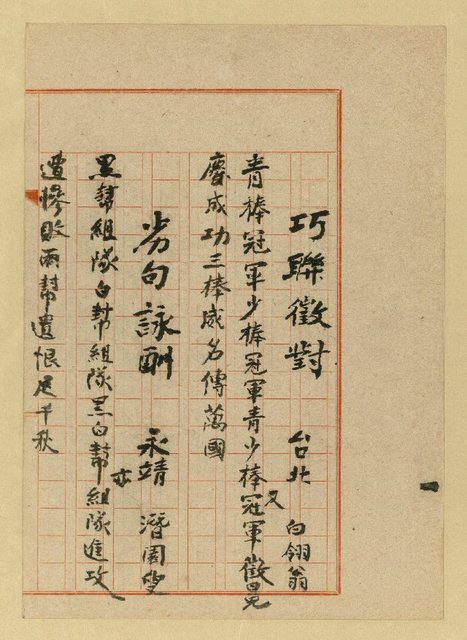 巧聯徵對 台北 白翎翁
青棒冠軍少棒冠軍青少棒又冠軍
慶成功三棒威名傳萬國
劣句詠酬 永靖 潛園叟
黑幫組隊白幫組隊黑白幫亦組隊進攻
遭慘敗兩幫遺恨足千秋